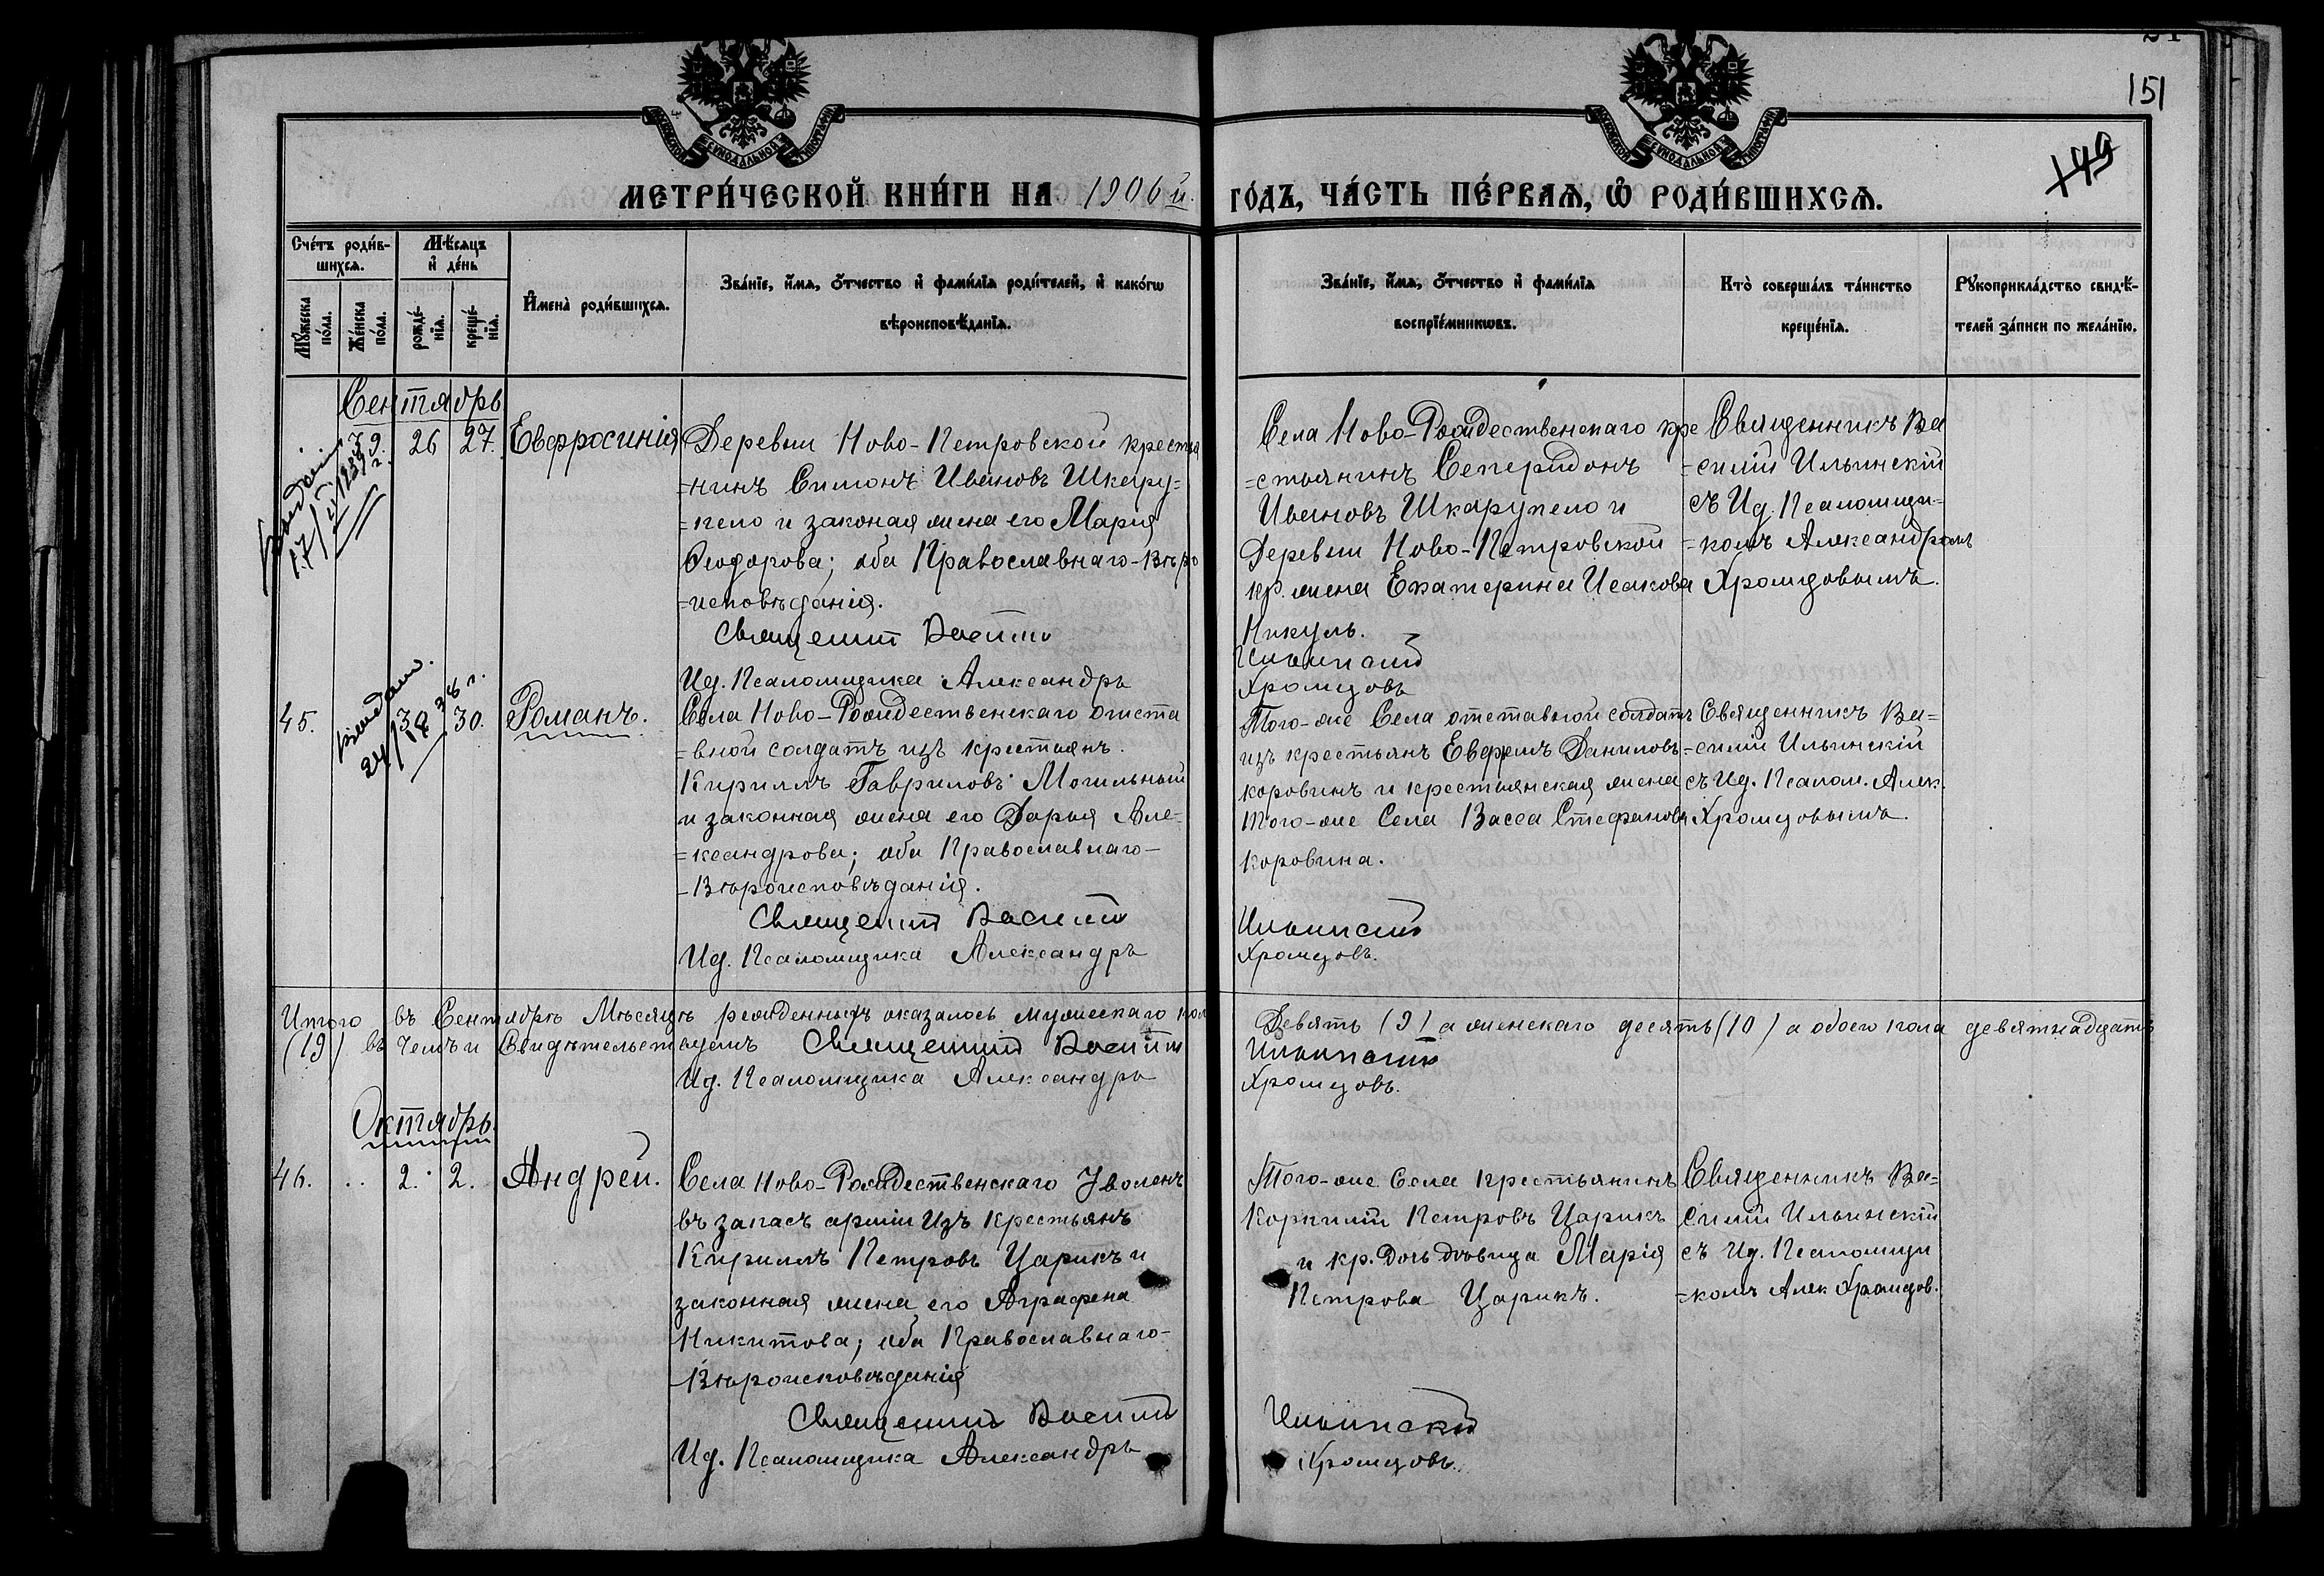 151
149
МЕТРИ́ЧЕСКОЙ КНИ́ГИ НА 1906 й. ГО́ДЪ, ЧА́СТЬ ПЕ́РВАѦ, Ѽ РОДИ́ВШИХСѦ.
Сче́тъ роди́в-
шихсѧ.
Мѣ́сѧцъ
и҆ де́нь
Мꙋ́жеска
по́ла.
Же́нска
по́ла.
рожде́-
нїѧ.
креще́-
нїѧ.
И҆мена̀ роди́вшихсѧ.
Зва́нїе, и҆́мѧ, ѻ҆́тчество и҆ фами́лїѧ роди́телей, и҆ како́гѡ
вѣроисповѣ́данїѧ.
Зва́нїе, и҆́мѧ, ѻ҆́тчество и҆ фами́лїѧ
воспрїе́мникѡвъ.
Кто̀ соверша́лъ та́инство
креще́нїѧ.
Рꙋкоприкла́дство свидѣ́-
телей за́писи по жела́нїю.
Сентябрь
26 27. Евфросинія
Деревни Ново-Петровской крестья
=нинъ Симонъ Ивановъ Шкару=
=пело и законая жена его Марія
Ѳеодорова; оба Православнаго-Вѣро
=исповѣданія.
Священник Василий
Ид. Псаломщика Александръ
Села Ново-Рождественскаго кре
=стьянинъ Сепиридонъ
Ивановъ Шкарупело и
Деревни Ново-Петровской
кр. жена Екатерина Исакова
Никуль.
Ильинский
Хромцовъ
Священникъ Ва
=силій Ильинскій
съ Ид. Псаломщи-
=комъ Александромъ
Хромцовымъ.
45. 30. Романъ.
Села Ново-Рождественскаго отста
=вной солдатъ изъ крестьянъ.
Кириллъ Гавриловъ Могильный
и законная жена его Дарья Але-
=ксандрова; оба Православнаго-
-Вѣроисповѣданія.
Священник Василий
Ид. Псаломщика Александръ
Того-же Села отставной солдатъ
изъ крестьянъ Евфимъ Даниловъ
коровинъ и крестьянская жена
того-же Села Васса Стефанова
Коровина.
Ильинский
Хромцовъ.
Священникъ Ва=
=силій Ильинскій
съ Ид. Псалом. Алек.
Хромцовымъ.
Итого въ Сентябрѣ Мѣсяцѣ рожденныхъ оказалось мужескаго пол Девять (9) а женскаго десять (10) а обоего пола девятнадцать
(19) въ чемъ и Свидѣтельствуемъ Священник Василий Ильинский
Ид. Псаломщика Александръ Хромцовъ.
Октябрь.
46. .. 2. 2. Андрей.
Села Ново-Рождественскаго Уволенъ
въ запасъ арміи Изъ Крестьянъ
Кириллъ Петровъ Царикъ и
законная жена его Аграфена
Никитова; оба Православнаго-
-Вѣроисповѣданія
Священник Василий
Ид. Псаломщика Александръ
Того-же Села Крестьянинъ
Корнилій Петровъ Царикъ
и кр. дочь дѣвица Марія
Петрова Царикъ.
Ильинский
Хромцовъ.
Священникъ Ва=
силій Ильинскій
съ Ид. Псаломщи
=комъ Алек Хромцов.